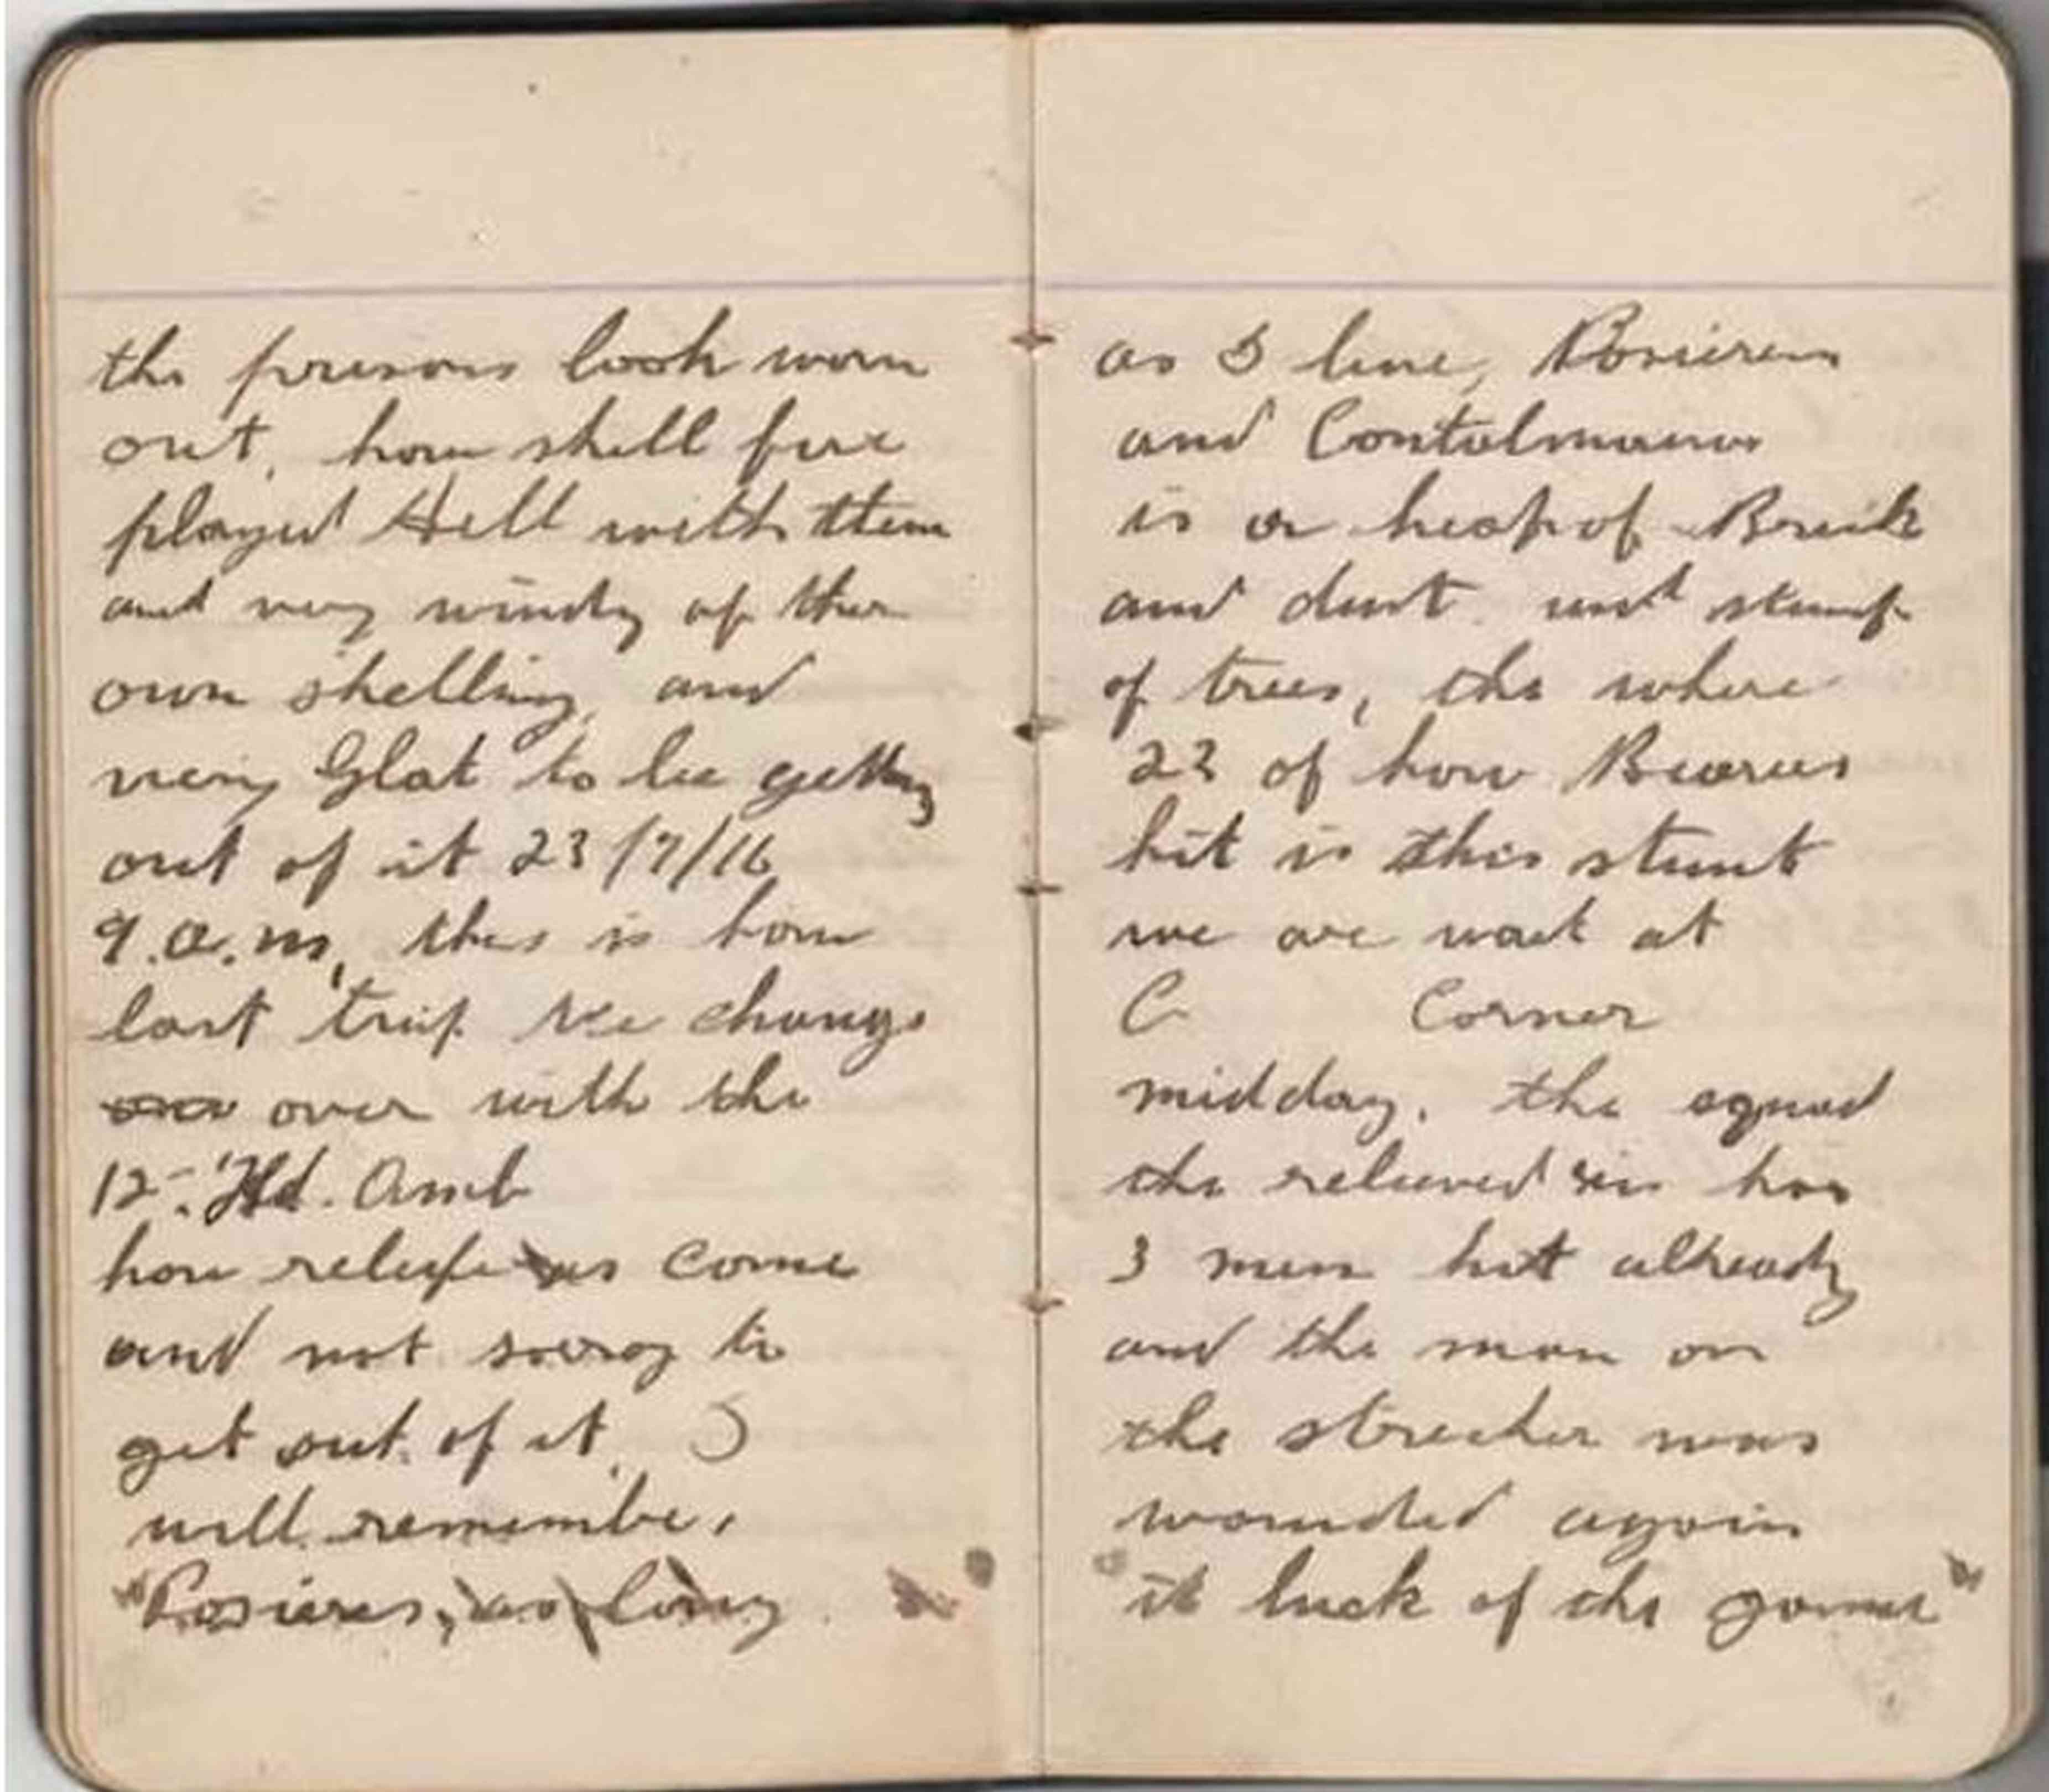 the prisons look worn
out, how shell fire
played Hell with them
and very windy of ther
own shelling, and
very Glat to be getting
out of it 23/7/16
9.a.m, this is how
last trip. We change
over with the
12th. Fld. Amb
how relife as come
and not sorry to
get out of it. I
will remember
"Posieres, as long
as I live, Posieres
and Contalmasion
is a heap of Brick
and dust and stump
of trees, the where
22 of how Bearers
hit is this stunt
we are wait at
C Corner
midday. the squad
the relieved has
3 men hit already
and the man on
the strecher was
wounded again
it luck of the games"